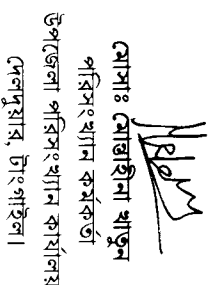 মোসাঃ মোহছিনা খাতুন
পরিসংখ্যান কর্মকর্তা
উপজেলা পরিসংখ্যান কার্যালয়
দেলদুয়ার, টাংগাইল।